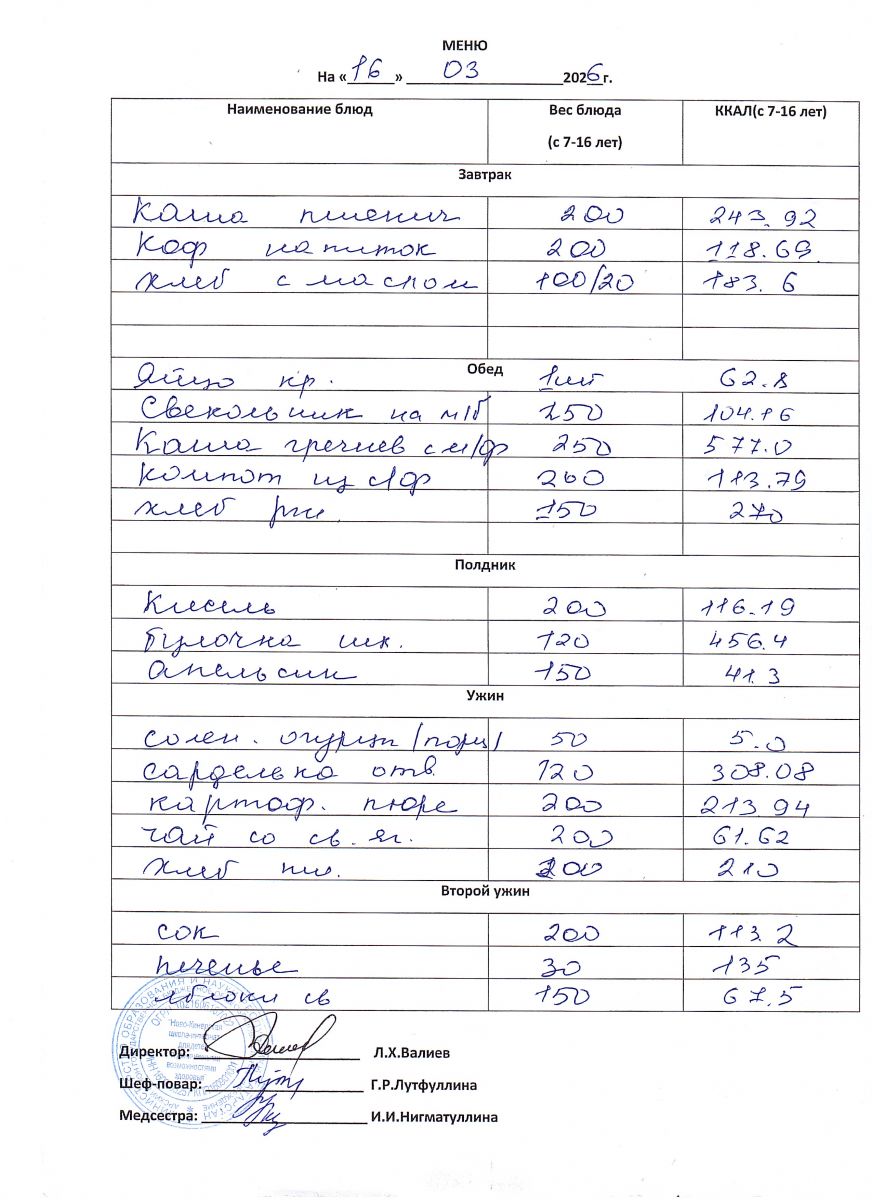 МЕНЮ
На «16» 03 2026 г.
Наименование блюд Вес блюда (с 7-16 лет) ККАЛ(с 7-16 лет)
Завтрак
Каша пшенич 200 243.92
Коф напиток 200 118.69
хлеб с маслом 100/20 183.6
Обед
Яйцо кр. 1шт 62.8
Свекольник на м/б 250 104.16
Каша гречнев с м/ф 250 577.0
компот из с/ф 200 113.79
хлеб рж. 150 270
Полдник
Кисель 200 116.19
булочка шк. 120 456.4
апельсин 150 41.3
Ужин
солен. огурцы (порц) 50 5.0
сарделька отв. 120 308.08
картоф. пюре 200 213.94
чай со св. яг. 200 61.62
хлеб пш. 200 210
Второй ужин
сок 200 113.2
печенье 30 135
яблоки св 150 67,5
Директор: Л.Х.Валиев
Шеф-повар: Г.Р.Лутфуллина
Медсестра: И.И.Нигматуллина